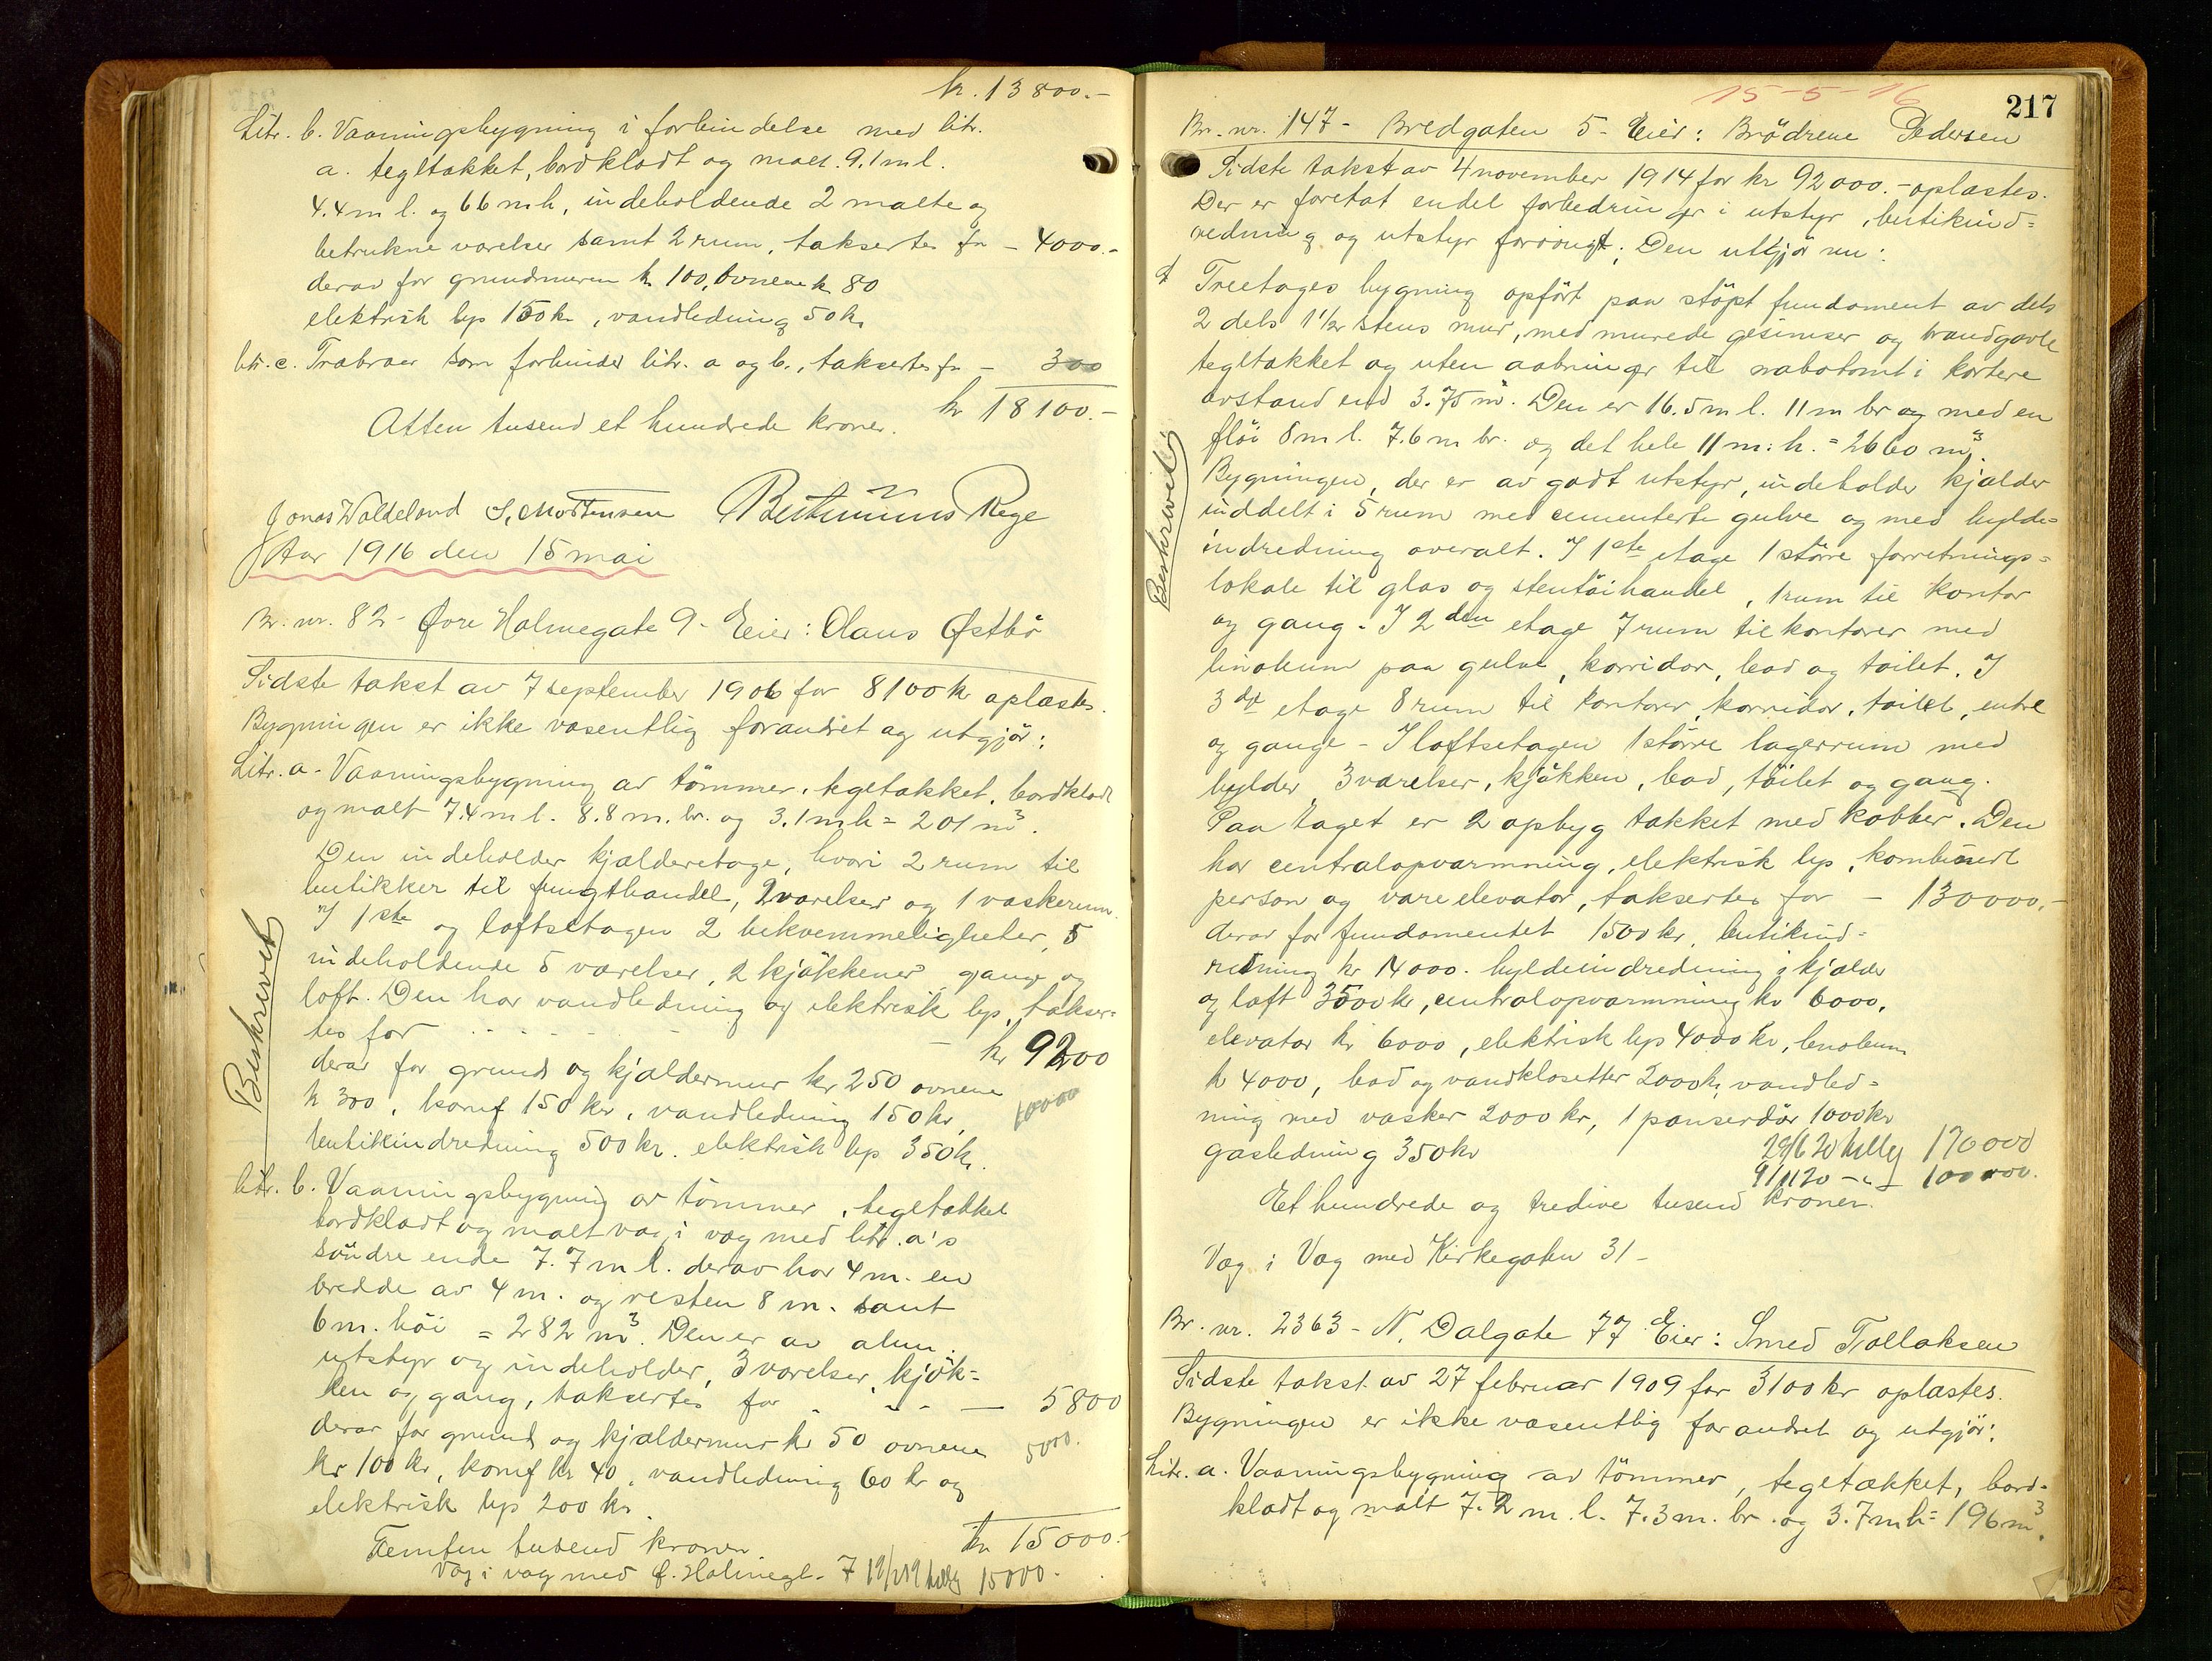 kr. 13800.-
Litr. b. Vaaningsbygning i forbindelse med litr.
a. tegltækket, bordklædt og malt. 9.1 m l.
4.4 m l. og 6.6 m h, indeholdende 2 malte og
betrukne værelser samt 2 rum, taksertes for - 4000.-
derav for grundmuren kr 100, ovnene kr 80
elektrisk lys 150 kr, vandledning 50 kr
litr. c. Træbroer som forbinder litr. a og b., taksertes for - 300
kr 18100.-
Atten tusend et hundrede kroner.
Jonas Waldeland S. Mortensen Rege
Aar 1916 den 15 mai
Br. nr. 82 - Øvre Holmegate 9 - Eier: Olaus Østbö
Sidste takst av 7 september 1906 for 8100 kr oplæstes.
Bygningen er ikke væsentlig forandret og utgjör:
Litr. a - Vaaningsbygning av tömmer, tegltækket, bordklædt
og malt 7.4 m l. 8.8 m. br. og 3.1 m h = 201 m³.
Den indeholder kjælderetage, hvori 2 rum til
butikker til frugthandel, 2 værelser og 1 vaskerum.
I 1ste og loftsetagen 2 bekvemmeligheter, 5
indeholdende 5 værelser, 2 kjökkener, gange og
loft. Den har vandledning og elektrisk lys, takser-
tes for - kr 9200
derav for grund og kjældermur kr 250 ovnene
kr 300, komf 150 kr, vandledning 150 kr, 10000
butikindredning 500 kr. elektrisk lys 350 kr.
Beskrevet
litr. b. Vaaningsbygning av tömmer, tegltækket
bordklædt og malt væg i væg med litr. a's
söndre ende 7.7 m l. derav har 4 m. en
bredde av 4 m. og resten 8 m. samt
6 m. höi = 282 m³. Den er av alm.
utstyr og indeholder 3 værelser, kjök-
ken og gang, taksertes for - 5800
derav for grund og kjældermur kr 50 ovnene 5000.
kr 100 kr, komf kr 40, vandledning 60 kr og
elektrisk lys 200 kr.
Femten tusend kroner. kr 15000.-
Væg i væg med Ø. Holmegt. 7 15000.-
15-5-16
217
Br. nr. 147 - Bredgaten 5 - Eier: Brödrene Pedersen
Sidste takst av 4 november 1914 for kr 92000.- oplæstes.
Der er foretat endel forbedringer i utstyr, butikind=
redning og utstyr forövrigt. Den utgjör nu:
Treetages bygning opfört paa stöpt fundament av dels
2 dels 1 1/2 stens mur, med murede gesimser og brandgavle
tegltækket og uten aabninger til nabotomt i kortere
avstand end 3.75 m. Den er 16.5 m l. 11 m br og med en
flöi 8 m l. 7.6 m br. og det hele 11 m: h. = 2660 m³.
Bygningen, der er av godt utstyr, indeholder kjælder
inddelt i 5 rum med cementerte gulve og med hylde=
indredning overalt. I 1ste etage 1 större forretnings=
lokale til glas og stentöihandel, 1 rum til kontor
og gang. I 2den etage 7 rum til kontorer med
linoleum paa gulve, korridor, bad og toilet. I
3die etage 8 rum til kontorer, korridor, toilet, entre
og gange - I loftsetagen 1 större lagerrum med
hylder 3 værelser, kjökken, bad, toilet og gang.
Paa taget er 2 opbyg tækket med kobber. Den
har centralopvarmning, elektrisk lys, kombinert
person og vareelevator, taksertes for - 130000.-
derav for fundamentet 1500 kr, butikind=
redning kr 14000. hyldeindredning i kjælder
og loft 3500 kr, centralopvarmning kr 6000,
elevator kr 6000, elektrisk lys 4000 kr, linoleum
kr 4000, bad og vandklosetter 2000 kr, vandled=
ning med vasker 2000 kr, 1 panserdör 1000 kr
gasledning 350 kr 29/6 20 170000
9/11 20 - " - 100000.
Et hundrede og tredive tusend kroner.
Væg i Væg med Kirkegaten 31 -
Beskrevet
Br. nr. 2363 - N. Dalgate 77 Eier: Smed Tollaksen
Sidste takst av 27 februar 1909 for 3100 kr oplæstes.
Bygningen er ikke væsentlig forandret og utgjör:
Litr. a. Vaaningsbygning av tömmer, tegltækket, bord-
klædt og malt 7.2 m. l. 7.3 m. br. og 3.7 m h = 196 m³.